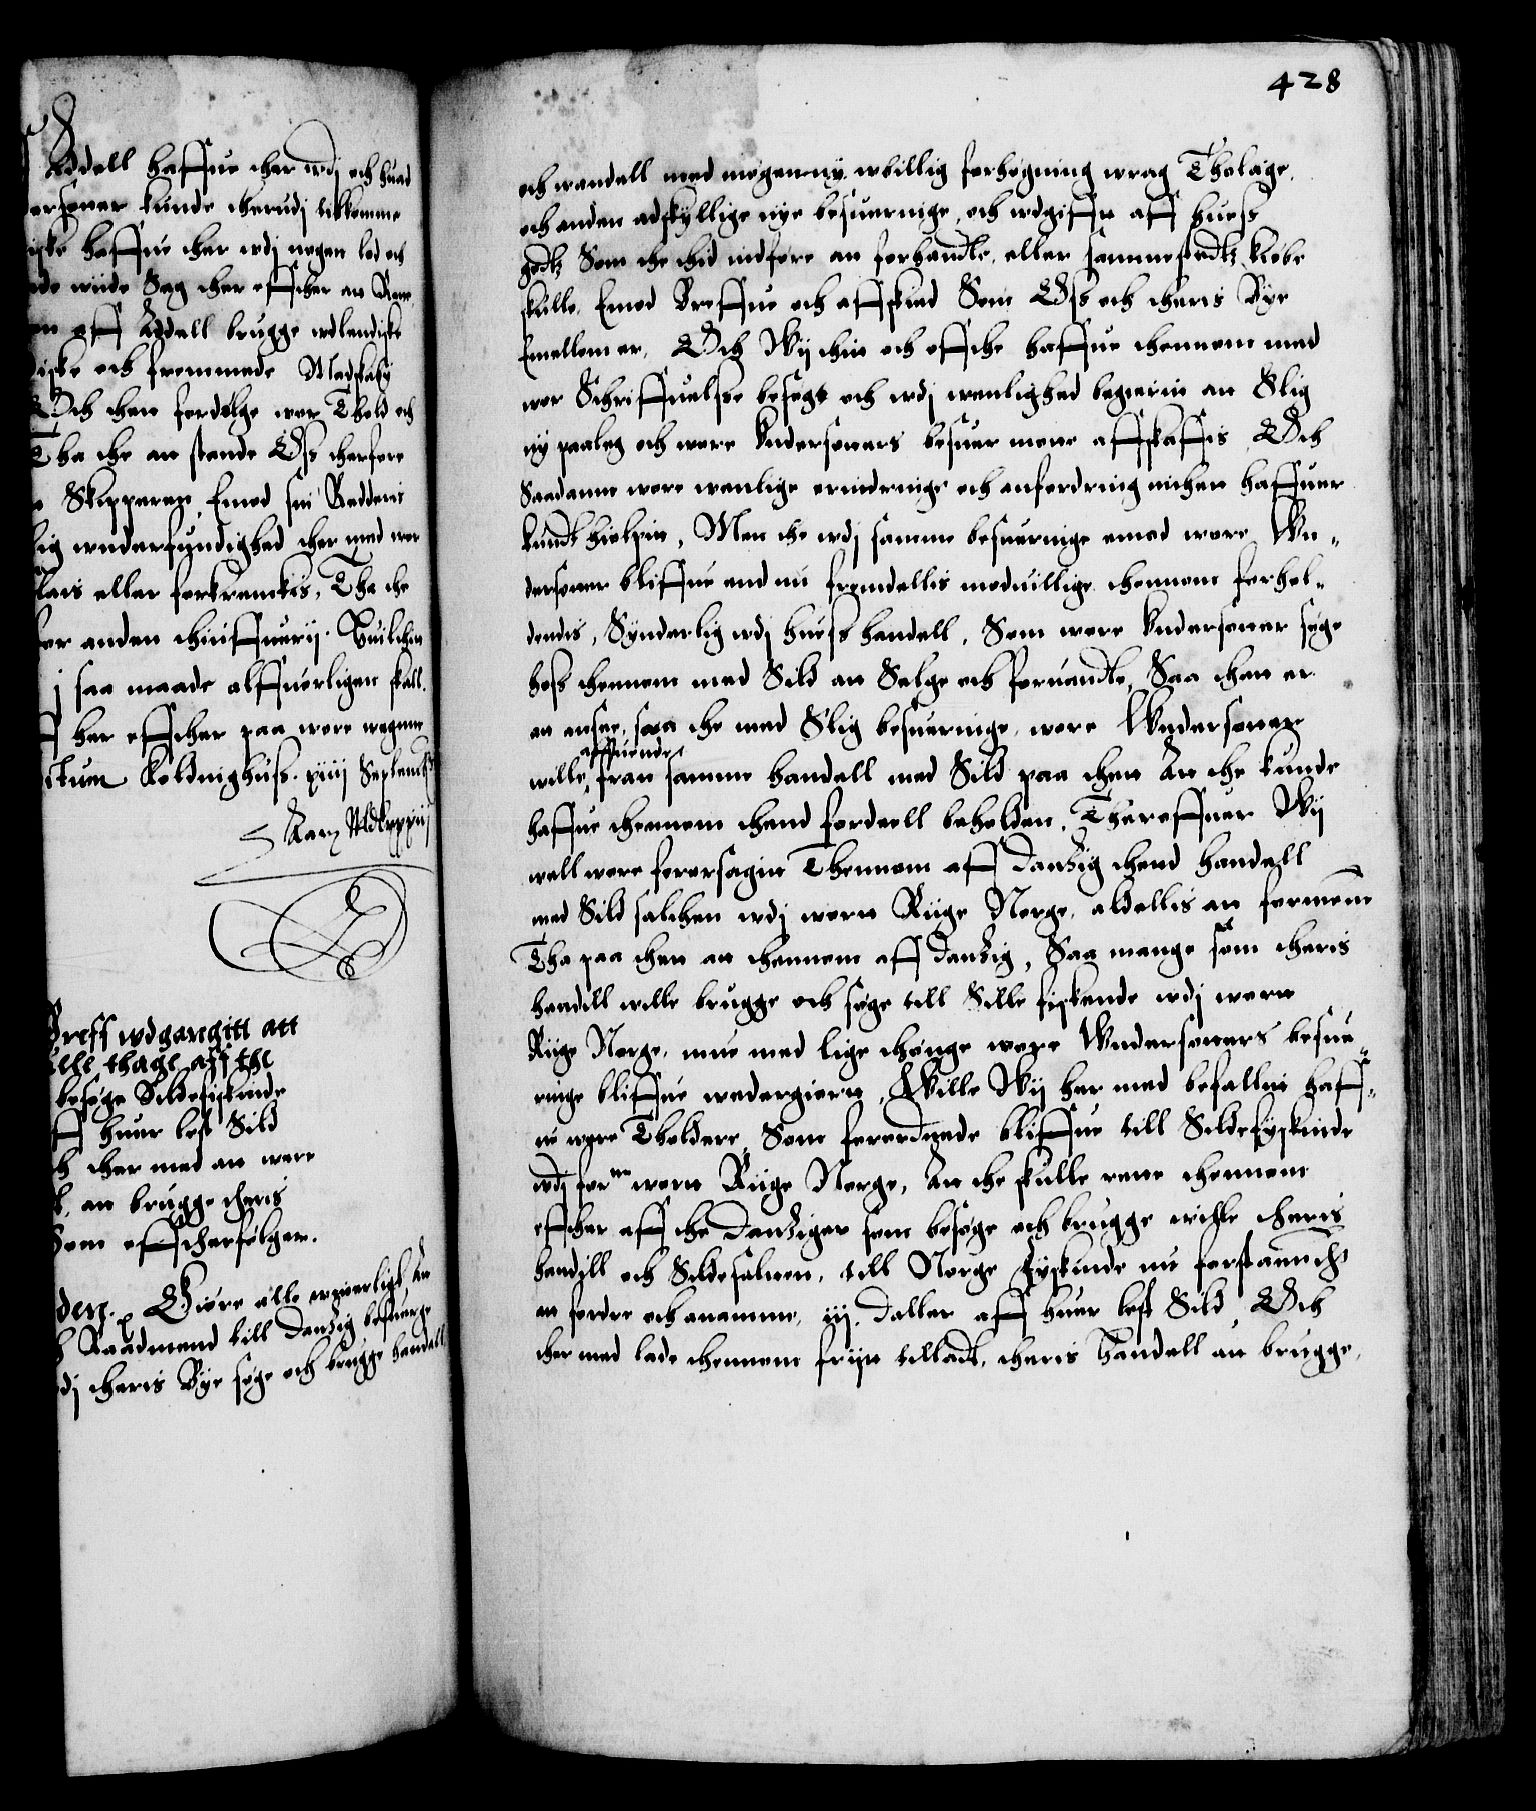 Adell haffue ther wdj och huad
dersoner kunde therudj tilkomme
iske haffue ther wdj nogen lod och
de wiide Sag ther effther at Ran
en aff Adell brugge wdlendiske
diske och fremmede Madskaby
Och then fordølge wor Thold och
Tha the at stande Oss therfore
Skipperen, Emod sin Redderis
lig wnderfundighed ther med wor
les eller forkrenckis, Tha the
for anden thiiffuerij. Huilchit
j saa maade alffuerligen skall
her effther paa wore wegne
tum Koldinghuss. xiiij Septemb
Anno Mdlxxxiij
Breff wdgangitt att
elle thage aff the
besøge Sildefiskinde
ff huer lest Sild
h ther med at were
at brugge theris
Som efftherfølger.
den. Giøre alle witterligt At
Raadmend till Dantzig besuerge
dj theris Bye søge och brugge handell
428
och wandell med nogen ny wbillig forhøgning wrag Tholage,
och anden adskyllige nye besueringe, och wdgifft aff huess
godtz Som the thid indføre at forhandle, eller sammestedtz kiøbe
skulle, Emod Breffue och affskeed Som Oss och theris Bye
Emellom er, Och Wij thit och offthe haffue thennom med
wor Schriffuelse besøgt och wdj wenlighed begierit at Slig
ny paaleg och wore Undersoners besuer motte affskaffis, Och
Saadanne wore wenlige erindringe och anfordring inthet haffuer
kundt hielpit, Men the wdj samme besueringe emod wore Un¬
dersoner bliffue end nu fremdellis moduillige thennom forhol¬
dendis, Synderlig wdj huess handell, Som wore Undersoner søge
hoss thennom med Sild at Selge och foruandle, Saa thet er
at ansee, saa the med Slig besueringe, wore Undersoner
affuende
wille, fran samme handell med Sild paa thet At the kunde
haffue thennom thend fordeell beholden, Thereffuer Wij
well wore forarsagit Thennom aff Dantzig thend handell
med Sild salthen wdj wort Riige Norge, aldellis at formene
Tha paa thet at thennom aff Dantzig, Saa mange som theris
handell wille brugge och søge till Sille fiskende wdj wort
Riige Norge, mue med lige thenge wore Undersoners besue¬
ringe bliffue wedergiort, Wille Wij her med befallit haff¬
ue wore Tholdere, Som forordnede bliffue till Sildefyskinde
wdj forne wort Riige Norge, At the skulle rette thennom
effther aff the Dantziger som besøge och brugge wille theris
handell och Sildesalten, till Norge Fyskinde nu forstaaendis
at fordre och anamme, iij. Daller aff huer lest Sild, Och
ther med lade thennom friit tilladt, theris handell at brugge,